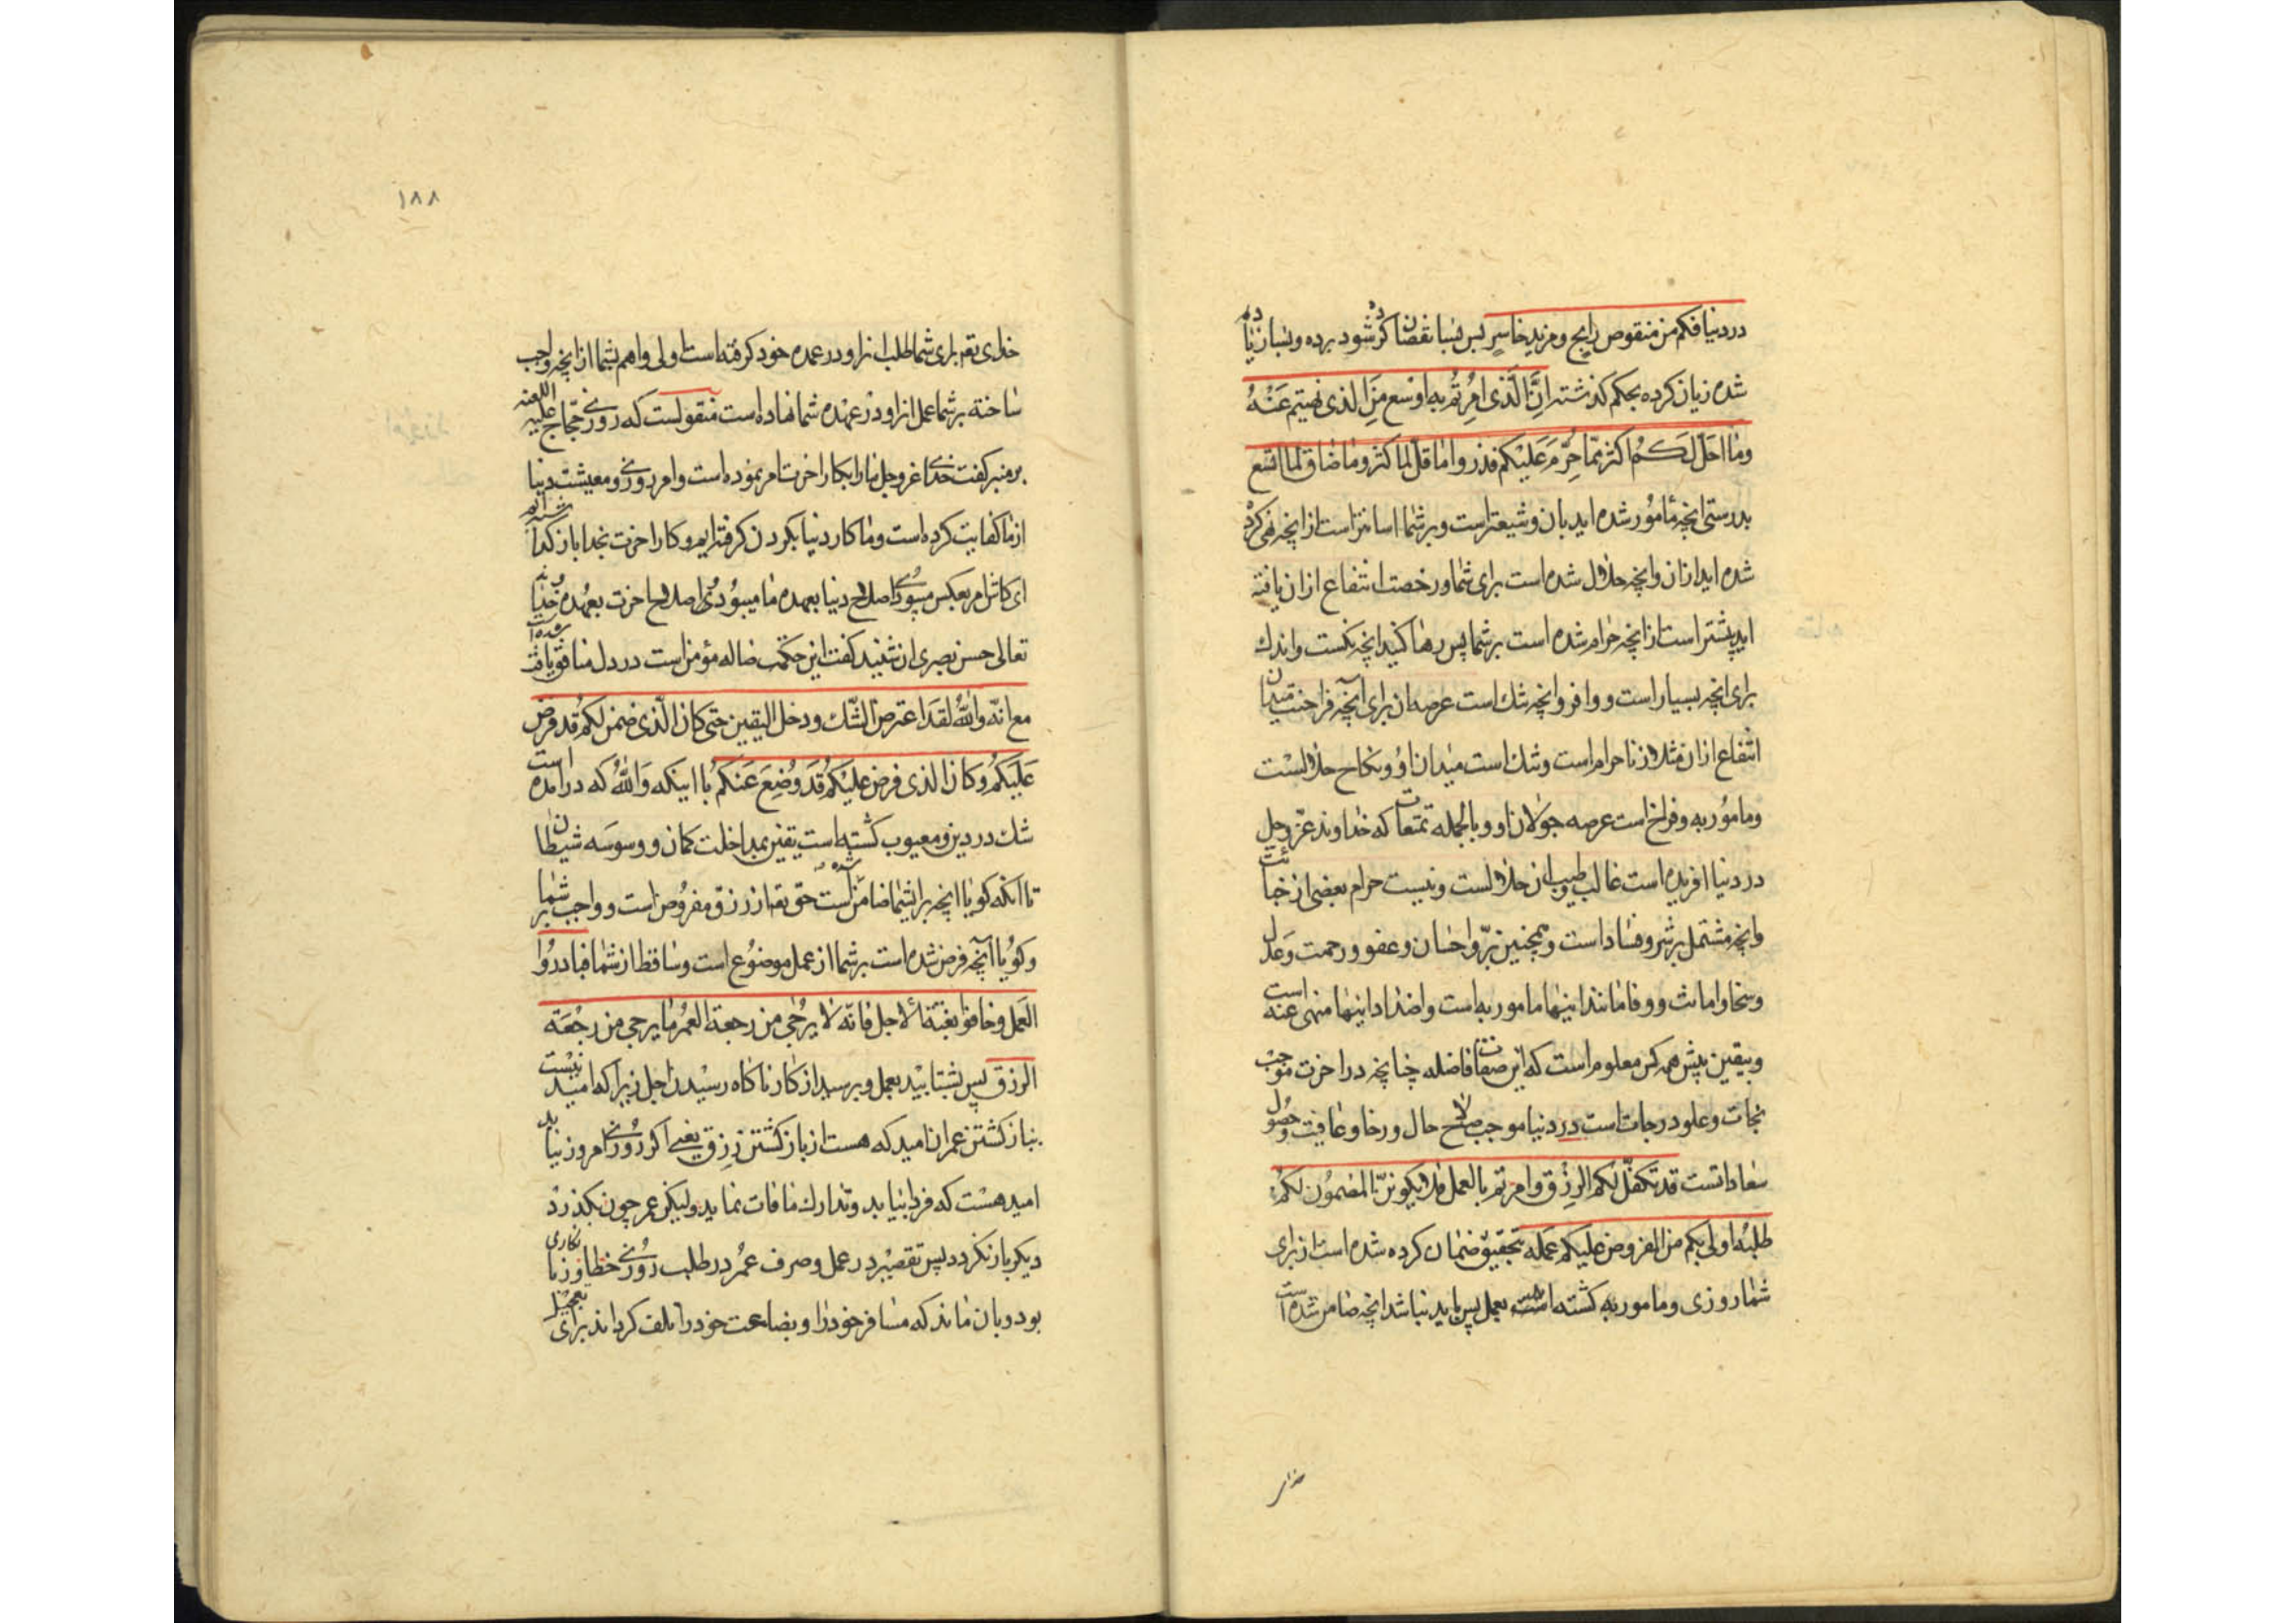 در دنیا فکم من منقوص رابح و مزید خاسر بس بسا نقصان کرده شود برده و بسا زیاده
شده زیان کرده بحکم کذشته انّ الّذی امرتم به اوسع من الذی نهیتم عنه
وما احلّ لکم اکثر ممّا حرّم علیکم فذروا ما قلّ لما کثر وما ضاق لما اتسع
بدرستی انچه مأمور شده اید بان وسیعتر است وبر شما اسانتر است از انچه نهی کرده
شده اید ازان وانچه حلال شده است برای شما ورخصت انتفاع ازان یافته
اید بیشتر است از انچه حرام شده است بر شما پس رها کنید انچه نکست واندك
برای انچه بسیار است ووافر وانچه تنك است عرصه ان برای آنچه فراخست میدان
انتفاع ازان مثلا زنا حرام است وتنك است میدان او ونکاح حلالست
ومامور به وفراخ است عرصه جولان او وبالجمله تمتعات که خداوند عزّ وجل
در دنیا افریده است غالب وطیب ان حلالست ونیست حرام بعضی از خبائث
وانچه مشتمل بر شر وفساد است وهمچنین برّ واحسان وعفو ورحمت وعدل
وسخا وامانت ووفا مانند اینها مامور به است واضداد اینها منهی عنه است
وبیقین پیش همه کس معلوم است که این صفات فاضله چنانچه در اخرت موجب
نجات وعلو درجات است در دنیا موجب صلاح حال ورخا وعافیت وحصول
سعاداتست قد تکفّل لکم الرزق وامرتم بالعمل فلا یکوننّ المضمون لکم
طلبه اولی بکم من المفروض علیکم عمله بتحقیق ضمان کرده شده است از برای
شما روزی ومامور به کشته اید بعمل پس باید نباشد انچه ضامن شده است
خدای
۱۸۸
خدای تعه برای شما طلب انرا ودر عهده خود کرفته است اولی واهم بشما از انچه واجب
ساخته بر شما عمل انرا ودر عهده شما نهاده است منقولست که روزی حجّاج علیه اللعنه
بر منبر کفت خدای عزوجل ما را بکار اخرت امر نموده است وامر روزی ومعیشت دنیا
از ما کفایت کرده است وما کار دنیا بکردن کرفته ایم وکار اخرت بخدا باز کذاشته ایم
ای کاش امر بعکس میبود اصلاح دنیا بعهده ما میبود واصلاح اخرت بعهده خدای
تعالی حسن بصری ان شنید کفت این حکمت ضاله مؤمن است در دل منافق یافت شده است
مع انّه والله لقد اعترض الشّك ودخل الیقین حتی کان الّذی ضمن لکم قد فرض
علیکم وکان الذی فرض علیکم قد وضع عنکم با اینکه والله که در امده است
شك در دین ومعیوب کشته است یقین بمداخلت کمان ووسوسه شیطان
تا آنکه کویا انچه برای شما ضامن شده است حق تعه از رزق مفروض است وواجب بر شما
وکویا آنچه فرض شده است بر شما از عمل موضوع است وساقط از شما فبادروا
العمل وخافوا بغتة الاجل فانّه لا یرجی من رجعة العمر ما یرجی من رجعة
الرزق پس بشتابید بعمل وبترسید از کار ناکاه رسیدن اجل زیرا که امید نیست
بباز کشتن عمر ان امید که هست از باز کشتن رزق یعنی اکر روزی امروز نیابد
امید هست که فردا بیابد وتدارك مافات نماید ولیکن عمر چون بکذرد
دیکر باز نکردد پس تقصیر در عمل وصرف عمر در طلب روزی خطا وزیانکاری
بود وبان ماند که مسافر خود را وبضاعت خود را تلف کرداند برای تعجیل